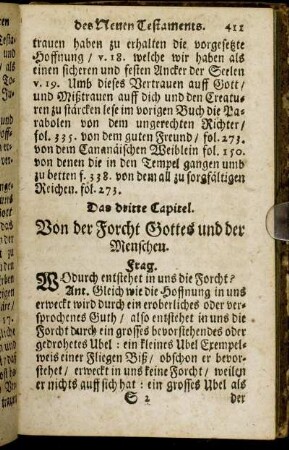 des Neuen Testaments. 411
trauen haben zu erhalten die vorgesetzte
Hoffnung / v. 18. welche wir haben als
einen sicheren und festen Ancker der Seelen
v. 19. Umb dieses Vertrauen auff Gott /
und Mißtrauen auff dich und den Creatu-
ren zu stärcken lese im vorigen Buch die Pa-
rabolen von dem ungerechten Richter /
fol. 335. von dem guten Freund / fol. 273.
von dem Cananäischen Weiblein fol. 150.
von denen die in den Tempel gangen umb
zu betten f. 338. von dem all zu sorgfältigen
Reichen. fol. 273.
Das dritte Capitel.
Von der Forcht Gottes und der
Menschen.
Frag.
WOdurch entstehet in uns die Forcht?
Ant. Gleich wie die Hoffnung in uns
erweckt wird durch ein eroberliches oder ver-
sprochenes Guth / also entstehet in uns die
Forcht durch ein grosses bevorstehendes oder
gedrohetes Ubel : ein kleines Ubel Exempel-
weis einer Fliegen Biß / obschon er bevor-
stehet / erweckt in uns keine Forcht / weilen
er nichts auff sich hat : ein grosses Ubel als
S 2 der